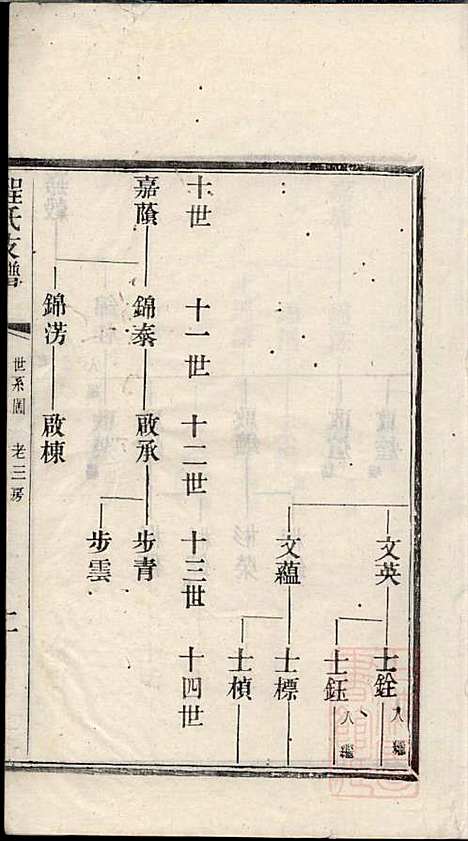 文英
士銓 入繼
士鈺 入繼
文蘊
士標
士楨
十世
十一世
十二世
十三世
十四世
嘉蔭
錦泰
啟承
步青
步雲
錦涝
啟棟
程氏支譜
世系圖 老三房